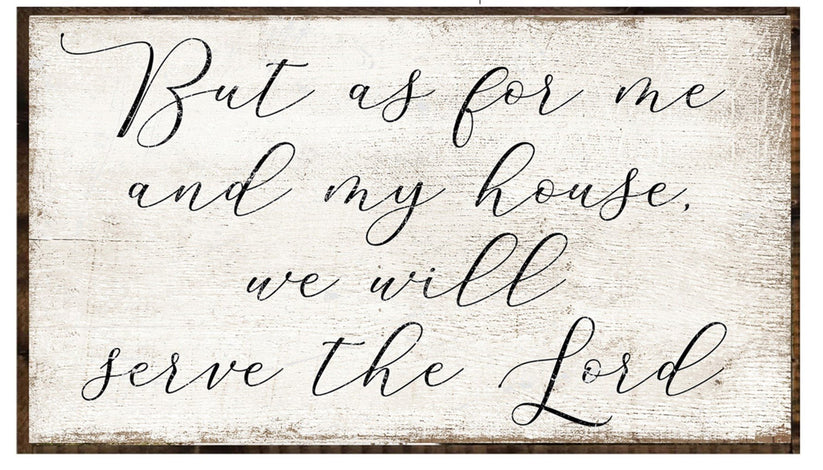 But as for me
and my house,
we will
serve the Lord